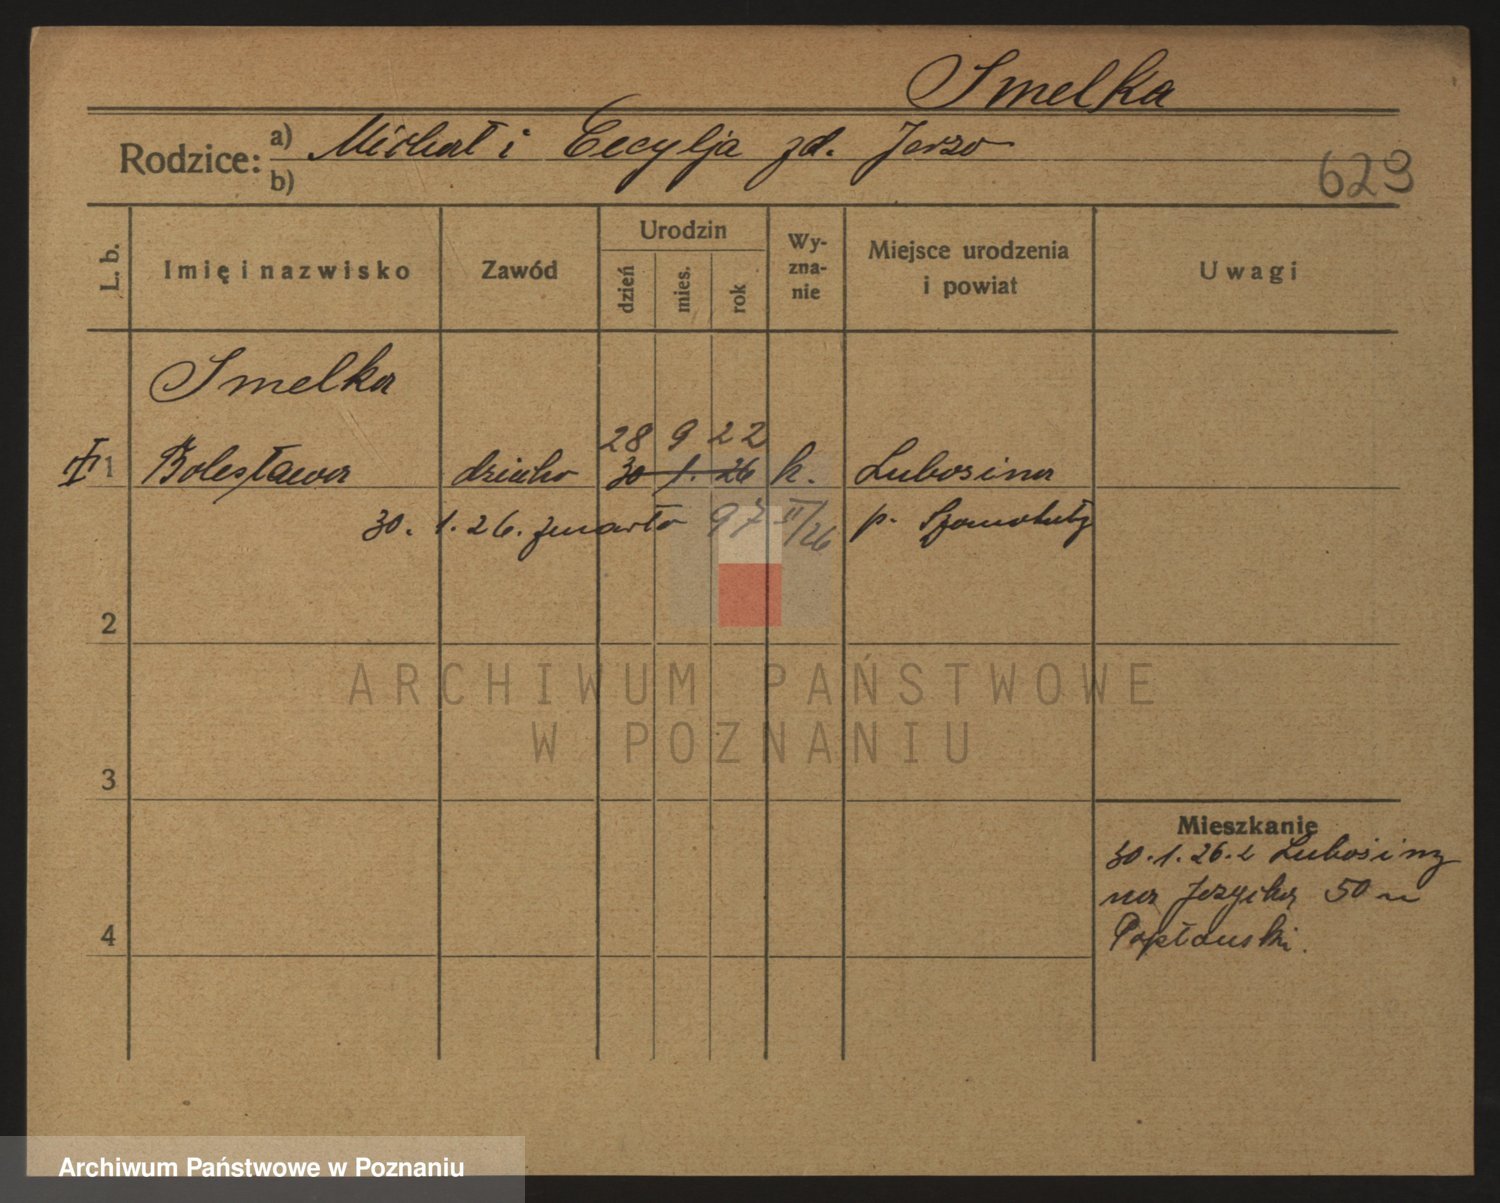 Smelka
Rodzice: a) Michał i Cecylja zd. Jerzo
b)
629
L. b.
Imię i nazwisko
Zawód
Urodzin
dzień
mies.
rok
Wy-
zna-
nie
Miejsce urodzenia
i powiat
Uwagi
Smelka
28 9 22
1 Bolesława dziecko 30 1. 26 k. Lubosina
30. 1. 26. zmarło 97 II/26 p. Szamotuły
2
ARCHIWUM PAŃSTWOWE
W POZNANIU
3
Mieszkanie
30. 1. 26. z Lubosiny
na Jeżycka 50 u
4
Archiwum Państwowe w Poznaniu